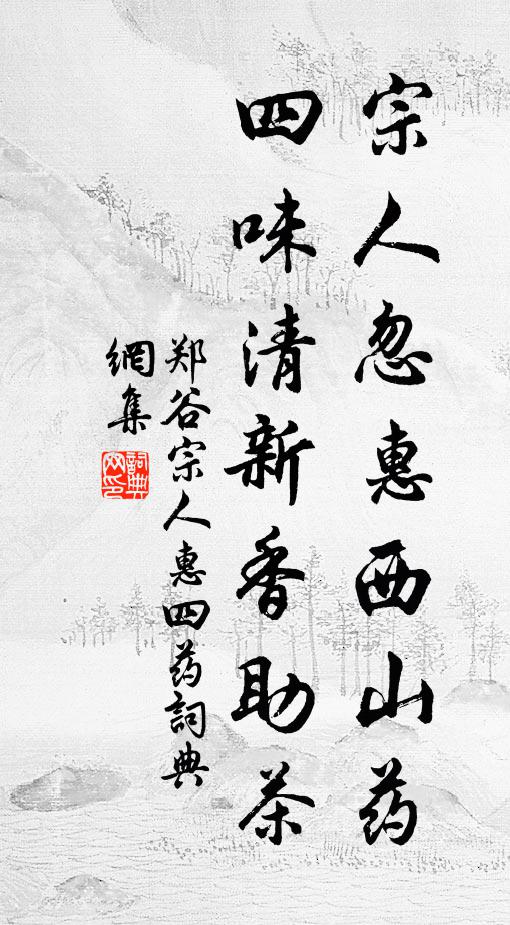 宗人忽惠西山药
四味清新香助茶
郑谷宗人惠四药詞典
網集
詞典
网印